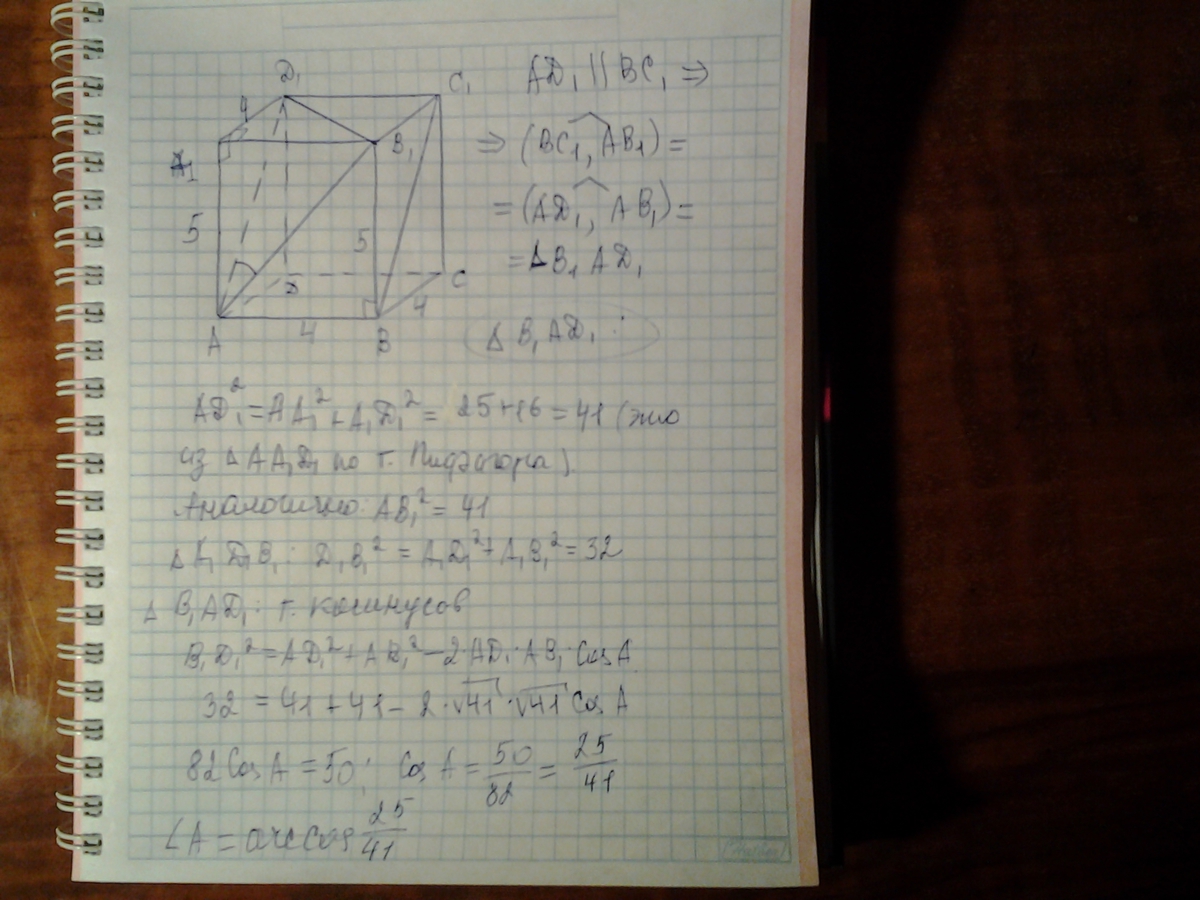 D₁
C₁
4
A₁
B₁
5
5
D
C
4
A
4
B
AD₁ || BC₁ ⇒
⇒ (BC₁, AB₁) =
= (AD₁, AB₁) =
= ∆B₁AD₁
∆ B₁AD₁:
AD₁² = AA₁² + A₁D₁² = 25+16 = 41 (это
из ∆ AA₁D₁ по т. Пифагора).
Аналогично: AB₁² = 41
∆ A₁D₁B₁: D₁B₁² = A₁D₁² + A₁B₁² = 32
∆ B₁AD₁: т. косинусов
B₁D₁² = AD₁² + AB₁² − 2·AD₁·AB₁·Cos A
32 = 41 + 41 − 2·√41·√41 Cos A
82 Cos A = 50; Cos A = 50/82 = 25/41
∠A = arccos 25/41